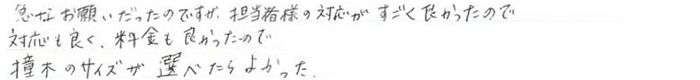 急なお願いだったのですが、担当者様の対応がすごく良かったので
対応も良く、料金も良かったので
撞木のサイズが選べたらよかった。